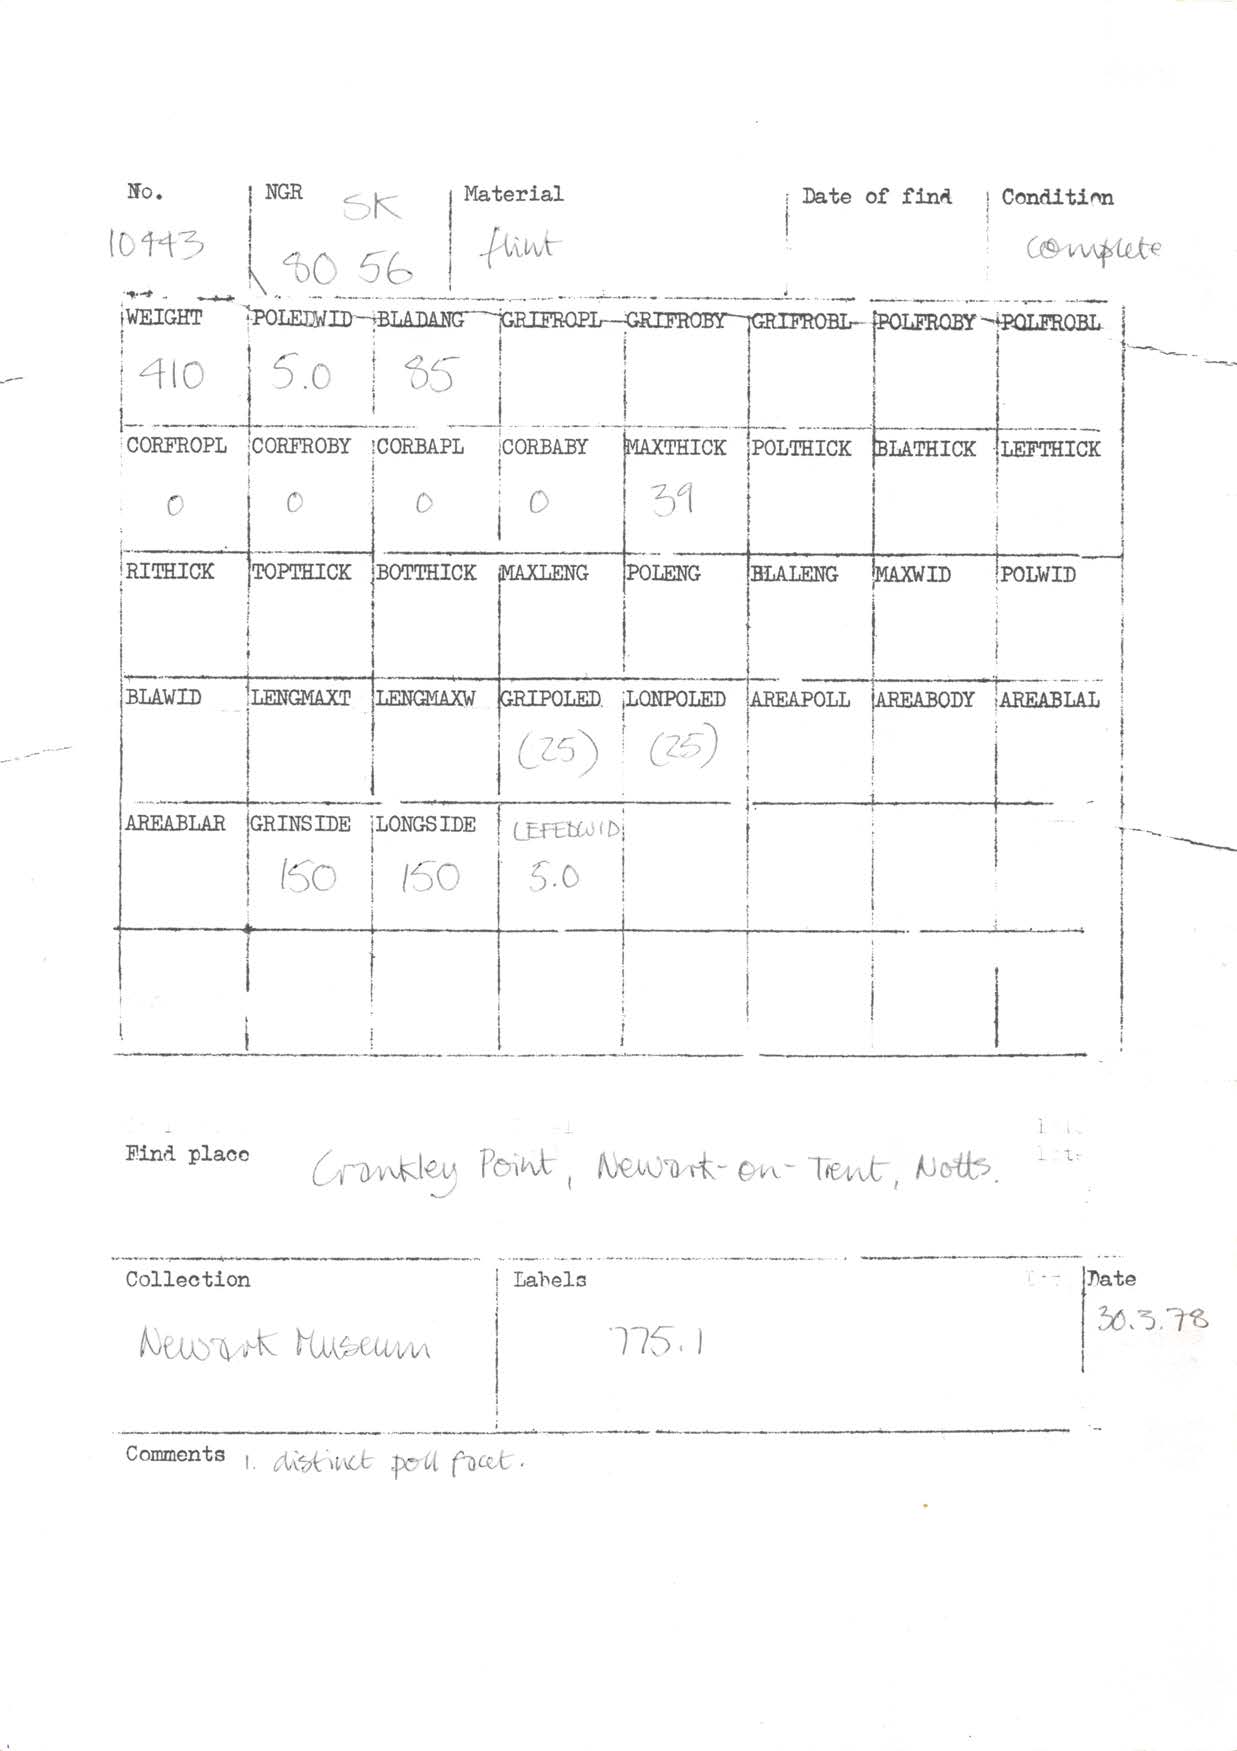 No. NGR SK Material Date of find Condition
10443 80 56 flint complete
WEIGHT POLEDWID BLADANG GRIFROPL GRIFROBY GRIFROBL POLFROBY POLFROBL
410 5.0 85
CORFROPL CORFROBY CORBAPL CORBABY MAXTHICK POLTHICK BLATHICK LEFTHICK
0 0 0 0 39
RITHICK TOPTHICK BOTTHICK MAXLENG POLENG BLALENG MAXWID POLWID
BLAWID LENGMAXT LENGMAXW GRIPOLED LONPOLED AREAPOLL AREABODY AREABLAL
(25) (25)
AREABLAR GRINSIDE LONGSIDE LEFEDWID
150 150 5.0
Find place Crankley Point, Newark-on-Trent, Notts.
Collection Labels Date
Newark Museum 775.1 30.3.78
Comments 1. distinct poll facet.